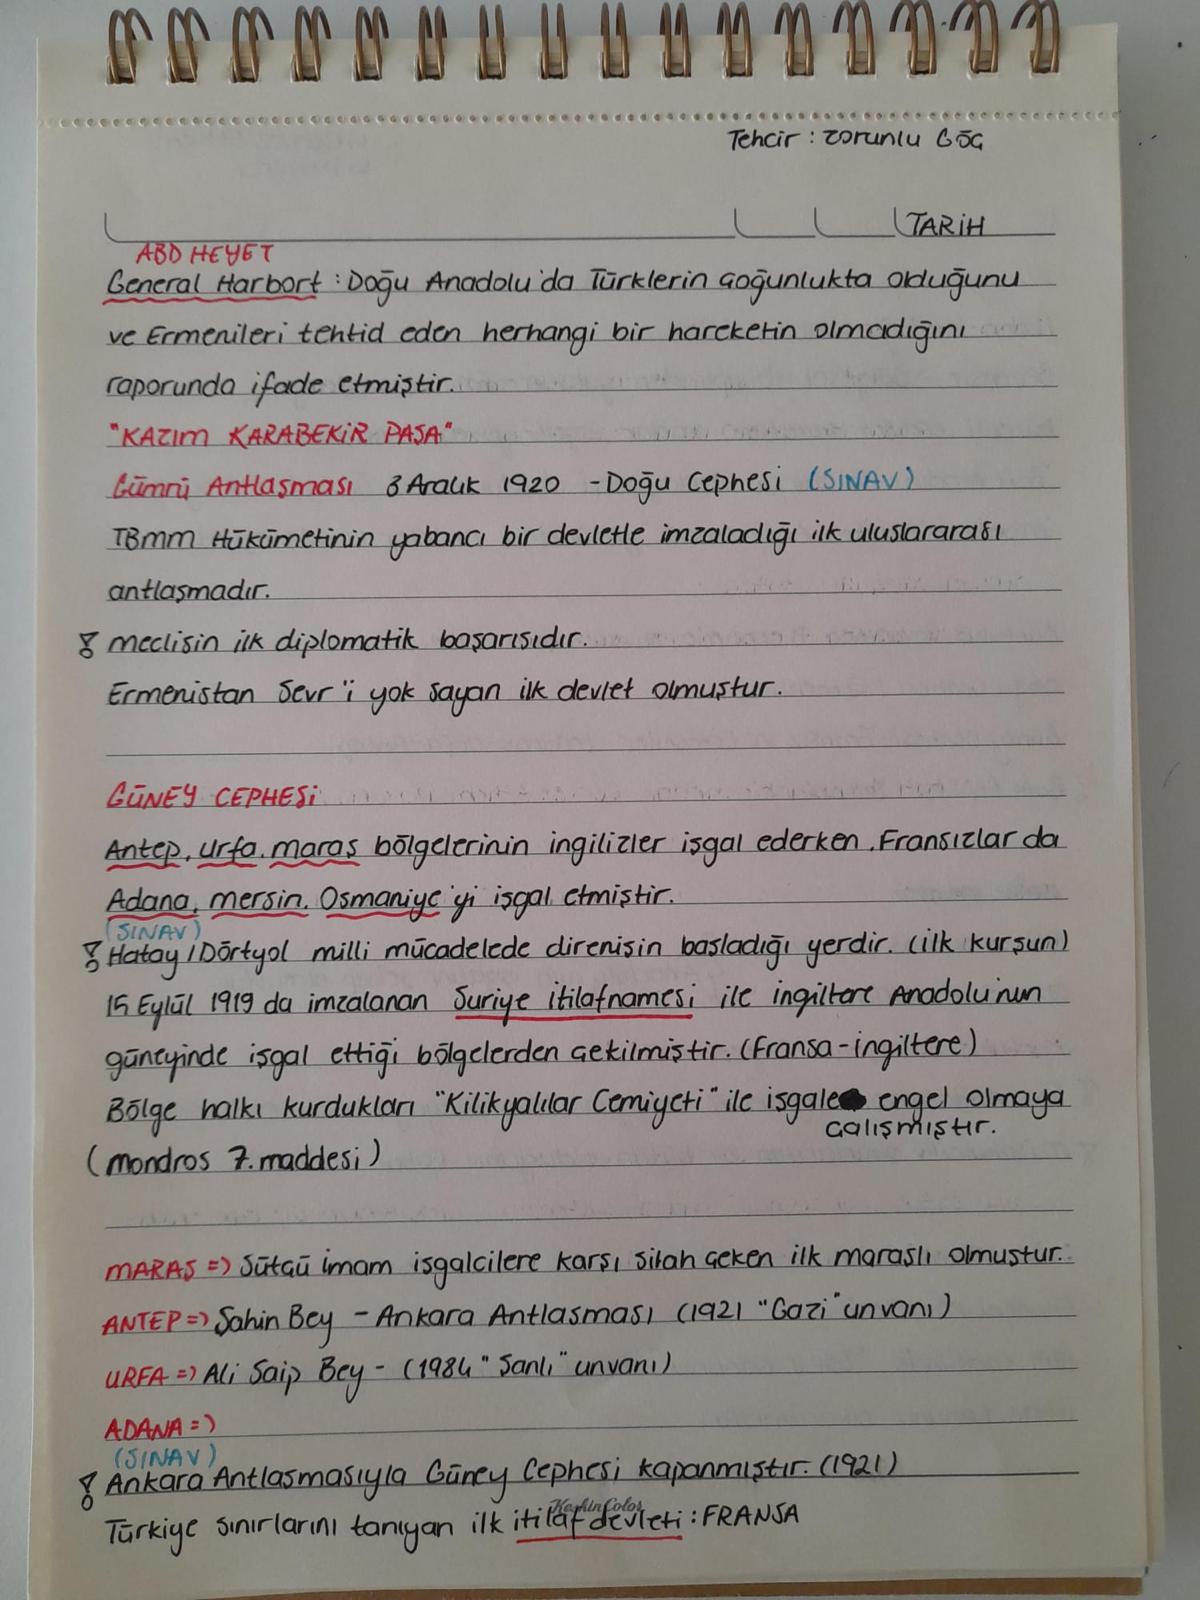 Tehcir : zorunlu Göç
TARİH
ABD HEYET
General Harbort : Doğu Anadolu'da Türklerin çoğunlukta olduğunu
ve Ermenileri tehtid eden herhangi bir hareketin olmadığını
raporunda ifade etmiştir.
"KAZIM KARABEKİR PAŞA"
Gümrü Antlaşması 3 Aralık 1920 - Doğu Cephesi (SINAV)
TBMM Hükümetinin yabancı bir devletle imzaladığı ilk uluslararası
antlaşmadır.
meclisin ilk diplomatik başarısıdır.
Ermenistan Sevr'i yok sayan ilk devlet olmuştur.
GÜNEY CEPHESİ
Antep, urfa, maraş bölgelerinin ingilizler işgal ederken. Fransızlar da
Adana, mersin, Osmaniye'yi işgal etmiştir.
(SINAV)
Hatay / Dörtyol milli mücadelede direnişin başladığı yerdir. (ilk kurşun)
15 Eylül 1919 da imzalanan Suriye itilafnamesi ile ingiltere Anadolu'nun
güneyinde işgal ettiği bölgelerden çekilmiştir. (Fransa-ingiltere)
Bölge halkı kurdukları "Kilikyalılar Cemiyeti" ile işgale engel olmaya
çalışmıştır.
(mondros 7. maddesi)
MARAŞ => Sütçü imam işgalcilere karşı silah çeken ilk maraşlı olmuştur.
ANTEP => Şahin Bey - Ankara Antlaşması (1921 "Gazi" unvanı)
URFA => Ali Saip Bey - (1984 "Şanlı" unvanı)
ADANA =>
(SINAV)
Ankara Antlaşmasıyla Güney Cephesi kapanmıştır. (1921)
Türkiye sınırlarını tanıyan ilk itilaf devleti : FRANSA
Keskin Color